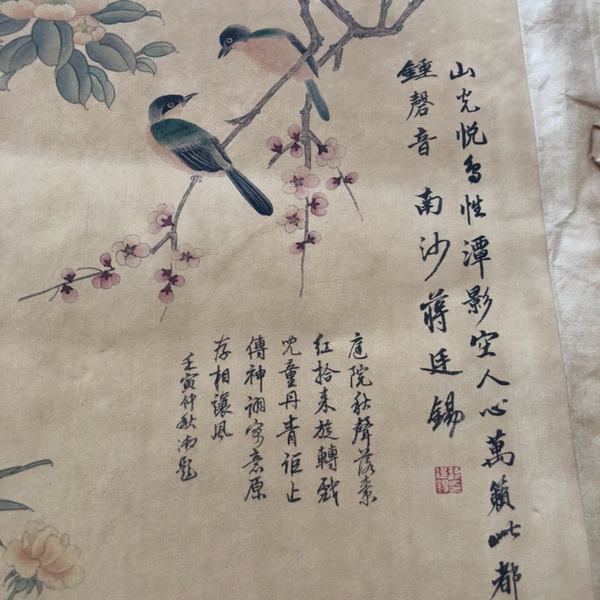 山光悦鳥性潭影空人心萬籟此都
鍾磬音 南沙蔣廷錫
庭院秋聲落棗
紅拾来旋轉戲
児童丹青詎止
傳神詡寄意原
存相讓風
壬寅仲秋御題
蔣廷錫